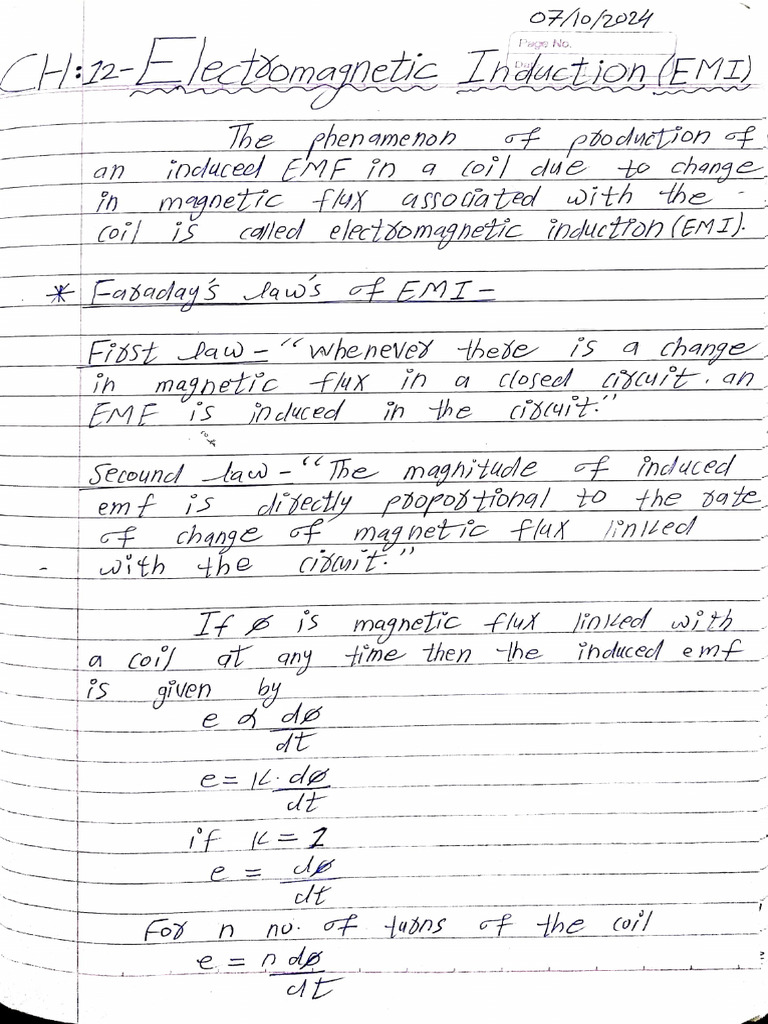 07/10/2024
Page No.
CH:12-Electromagnetic Induction (EMI)
The phenamenon of production of
an induced EMF in a coil due to change
in magnetic flux associated with the
coil is called electromagnetic induction (EMI).
* Faraday's law's of EMI -
First law - "Whenever there is a change
in magnetic flux in a closed circuit. an
EMF is induced in the circuit."
Secound law - "The magnitude of induced
emf is directly proportional to the rate
of change of magnetic flux linked
with the circuit."
If ø is magnetic flux linked with
a coil at any time then the induced emf
is given by
e ∝ dø
dt
e = K. dø
dt
if K = 1
e = dø
dt
For n no. of turns of the coil
e = n dø
dt